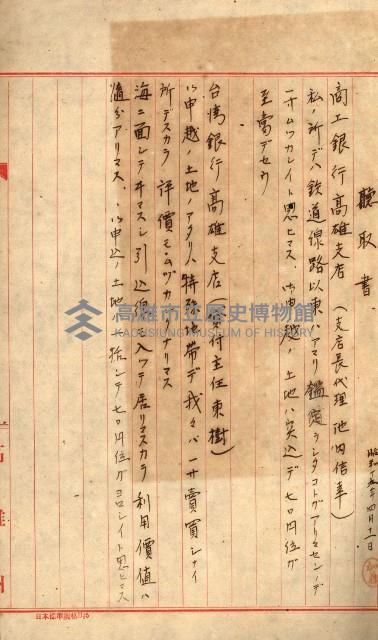 聽取書
昭和十五年四月十一日
商工銀行高雄支店（支店長代理 池内信幸）
私ノ所デハ鉄道線路以東ハアマリ鑑定シタコトガアリマセンノデ
一寸ムツカシイト思ヒマス、御申越ノ土地ハ突込デ七〇円位ガ
至當デセウ
台湾銀行高雄支店（貸付主任 東樹）
御申越ノ土地ノアタリハ特殊地帯デ我々ハ一寸賣買シナイ
所デスカラ評價モムヅカシクアリマス
海ニ面シテヰマスシ引込線モ入ツテ居リマスカラ利用價値ハ
随分アリマス、御申込ノ土地ハ一括シテ七〇円位ガヨロシイト思ヒマス
高雄市立歷史博物館
KAOHSIUNG MUSEUM OF HISTORY
高雄州
日本標準規格B5